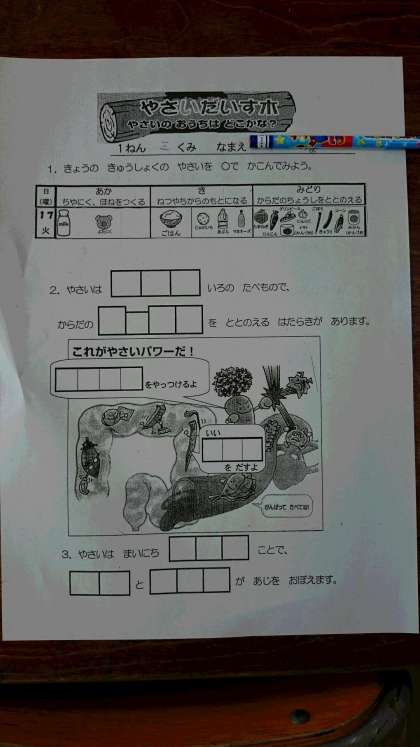 やさいだいすき
やさいの おうちは どこかな？
1ねん 三 くみ なまえ
1．きょうの きゅうしょくの やさいを ○で かこんでみよう。
日(曜) あか き みどり
ちやにく、ほねをつくる ねつやちからのもとになる からだのちょうしをととのえる
17
火
ごはん
2．やさいは いろの たべもので、
からだの を ととのえる はたらきが あります。
これがやさいパワーだ！
をやっつけるよ
いい
を だすよ
がんばって たべてね！
3．やさいは まいにち ことで、
と が あじを おぼえます。